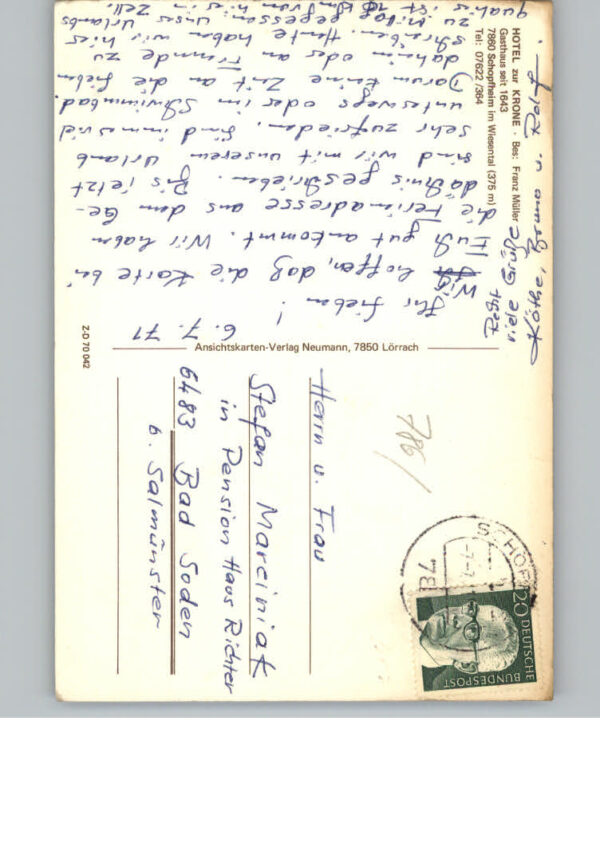 HOTEL zur KRONE · Bes: Franz Müller
Gasthaus seit 1643
7860 Schopfheim im Wiesental (375 m)
Tel: 07622/364
6. 7. 71
Ihr Lieben!
Wir hoffen, daß die Karte bei
Euch gut ankommt. Wir haben
die Ferienadresse aus dem Ge-
dächtnis geschrieben. Bis jetzt
sind wir mit unserem Urlaub
sehr zufrieden. Sind immer viel
unterwegs oder im Schwimmbad.
Darum keine Zeit an die Lieben
daheim oder an Freunde zu
schreiben. Heute haben wir hier
zu Mittag gegessen; unser Urlaubs
ist in Zell.
viele Grüße
Ansichtskarten-Verlag Neumann, 7850 Lörrach
Z-D 70 042
786/
SCHOPF
20
DEUTSCHE
BUNDESPOST
Herrn u. Frau
Stefan Marciniak
in Pension Haus Richter
6483 Bad Soden
b. Salmünster